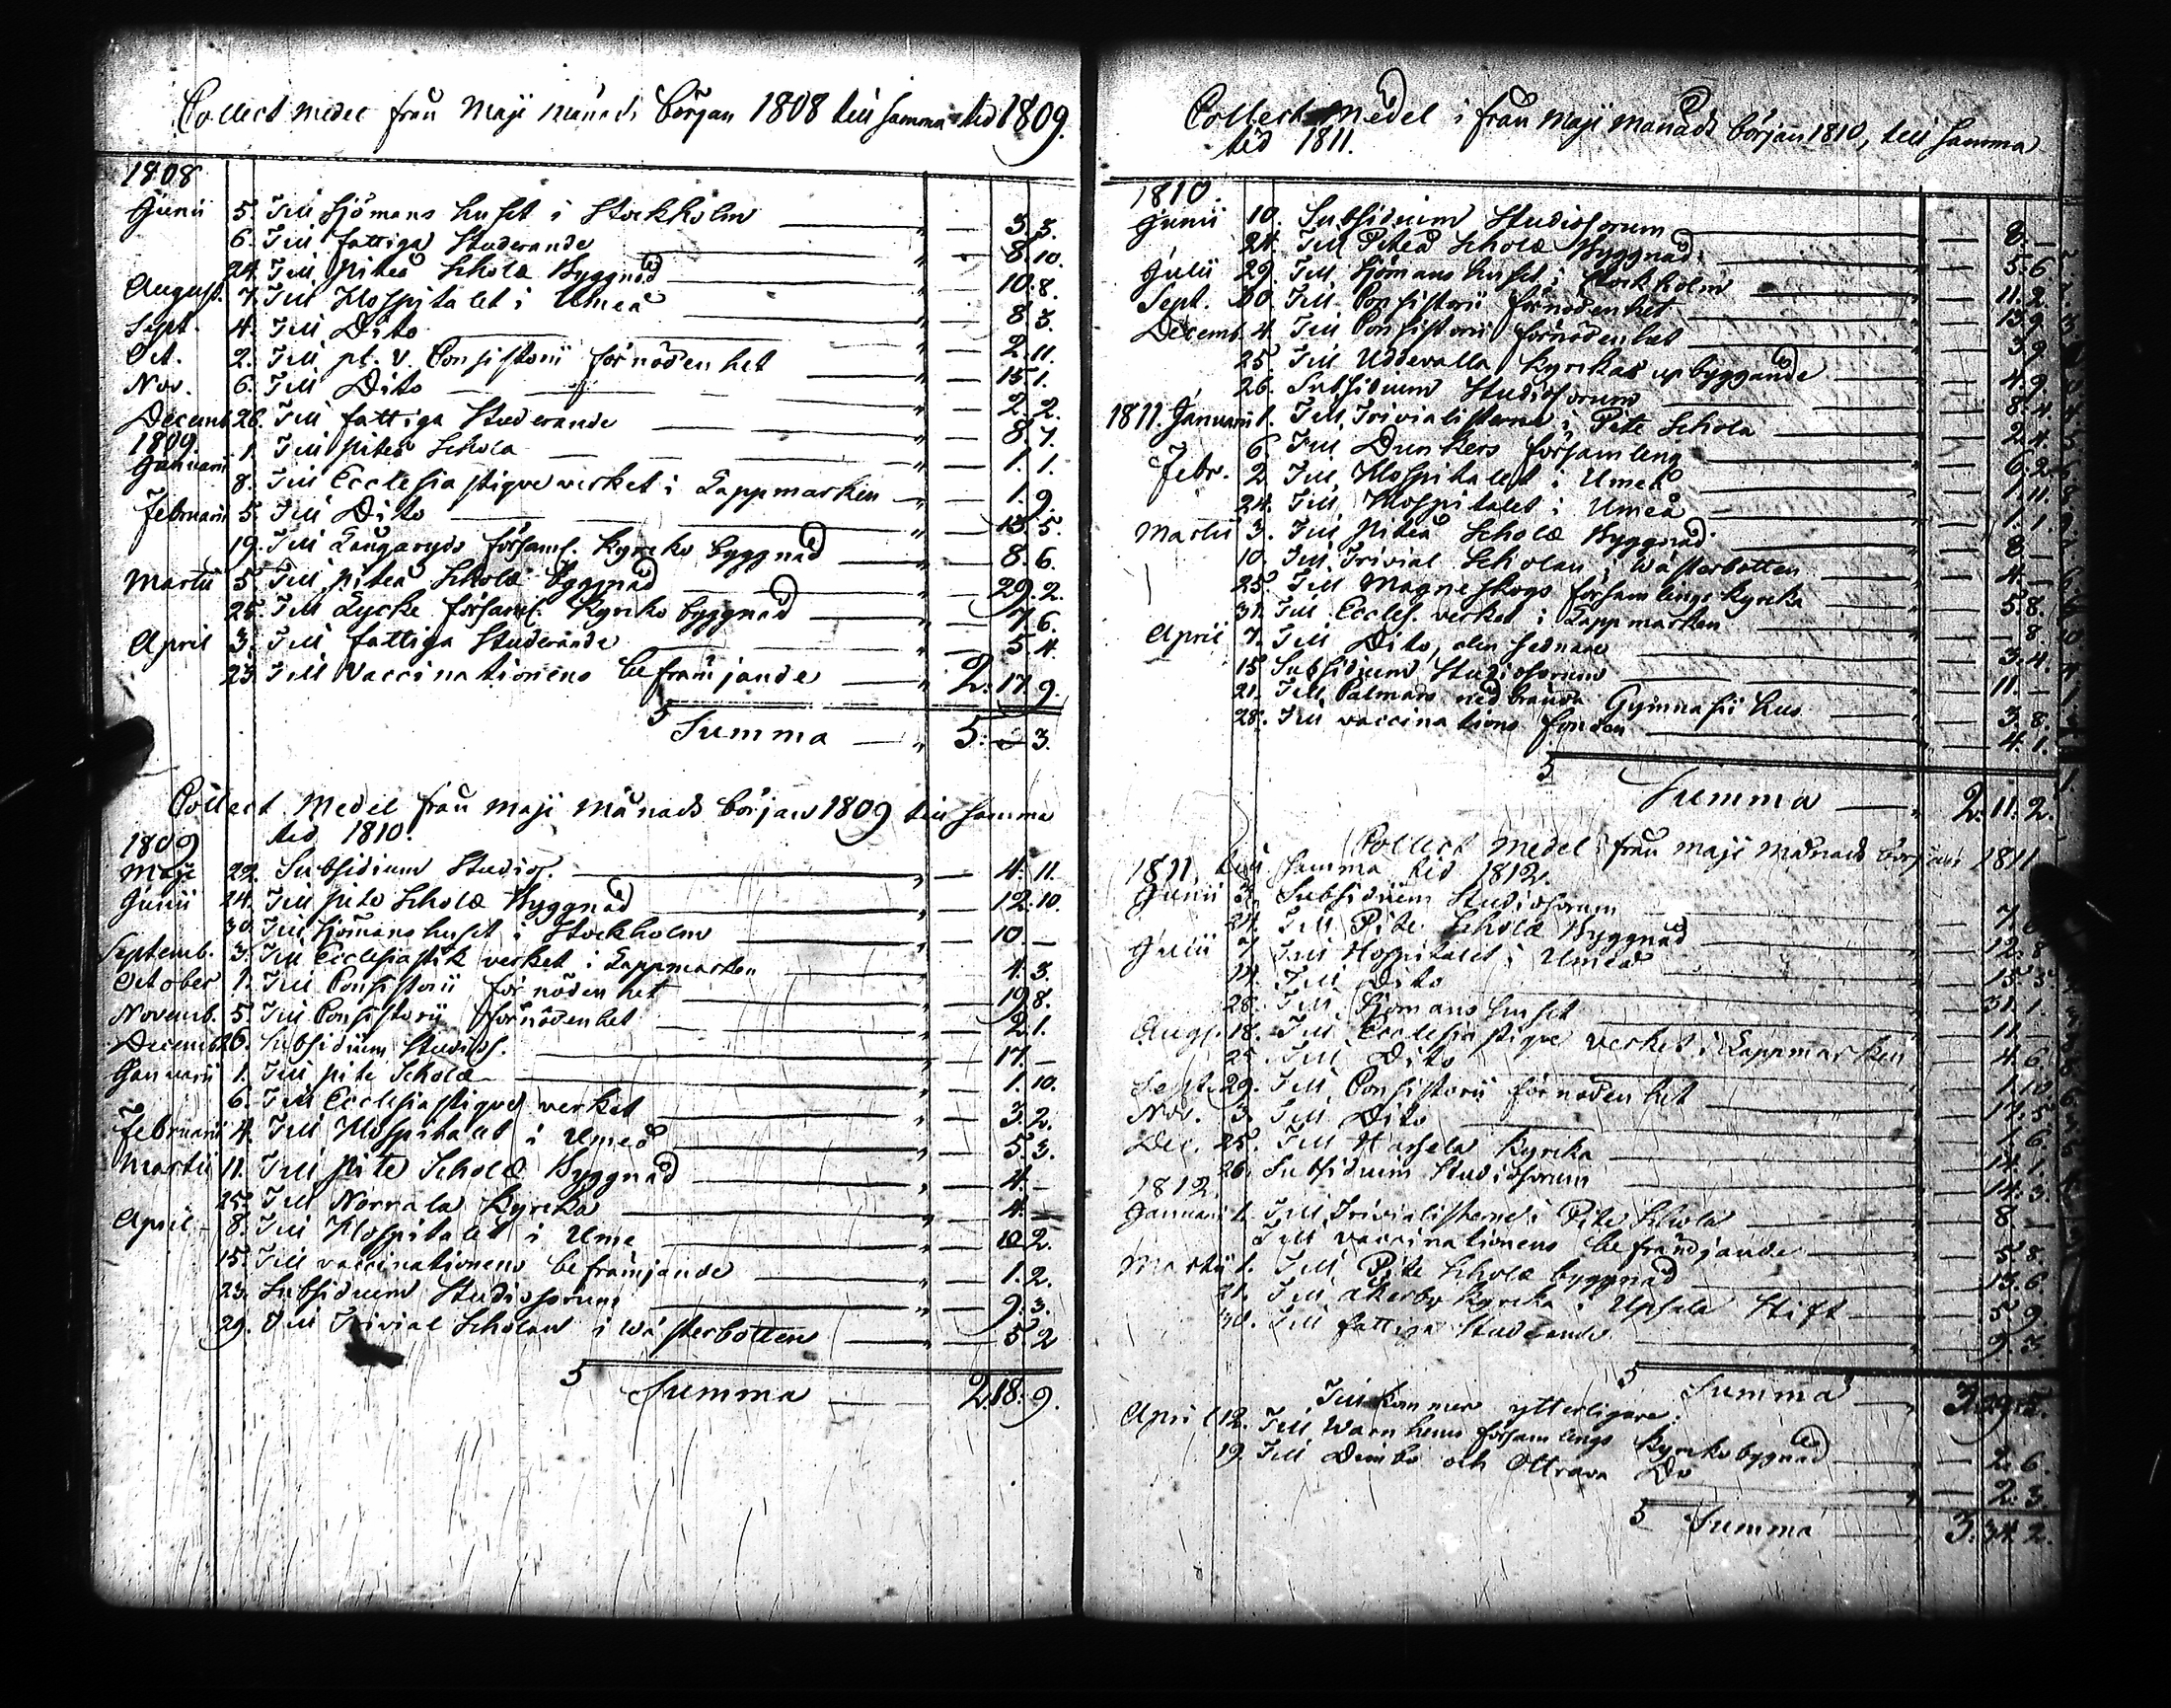 Collect medel från Maji Månads början 1808 till samma tid 1809.
1808
Junii 5. Till Sjömans huset i Stockholm — " — 3. 3.
6. Till fattiga Studerande — " — 8. 10.
24. Till Piteå Scholæ Byggnad — " — 10. 8.
August. 7. Till Hospitalet i Umeå — " — 8. 3.
Sept. 4. Till Dito — " — 2. 11.
Oct. 2. Till pl. V. Consistorii förnödenhet — " — 15. 1.
Nov. 6. Till Dito — " — 2. 2.
Decemb. 26. Till fattiga Studerande — " — 8. 7.
1809
Januarii 1. Till Piteå Schola — " — 1. 1.
8. Till Ecclesiastique verket i Lappmarken — " — 1. 9.
Februarii 5. Till Dito — " — 13. 5.
19. Till Långaryds församl. Kyrko byggnad — " — 8. 6.
Martii 5. Till Piteå Scholæ Byggnad — " — 29. 2.
25. Till Lycke församl. Kyrko byggnad — " — 7. 6.
April 3. Till fattiga Studerande — " — 5. 4.
23. Till Vaccinationens befrämjande — " 2. 17. 9.
Summa — " 5. — 3.
Collect Medel från Maji Månads början 1809 till samma
tid 1810.
1809
Maji 22. Subsidium Studios. — " — 4. 11.
Junii 24. Till Pite Scholæ Byggnad — " — 12. 10.
30. Till Sjömanshuset i Stockholm — " — 10. —
Septemb. 3. Till Ecclesiastik verket i Lappmarken — " — 4. 3.
October 1. Till Consistorii förnödenhet — " — 19. 8.
Novemb. 5. Till Consistorii förnödenhet — " — 2. 1.
Decemb. 26. Subsidium Studios. — " — 17. —
Januarii 1. Till Pite Scholæ — " — 1. 10.
6. Till Ecclesiastique verket — " — 3. 2.
Februarii 4. Till Hospitalet i Umeå — " — 5. 3.
Martii 11. Till Pite Scholæ Byggnad — " — 4. —
25. Till Norrala Kyrcka — " — 4. —
April 8. Till Hospitalet i Ume — " — 10. 2.
15. Till vaccinationens befrämjande — " — 1. 2.
23. Subsidium Studiosorum — " — 9. 3.
29. Till Trivial Scholan i Wästerbotten — " — 5. 2
Summa — 2. 18. 9.
Collect Medel i från Maji månads början 1810, till samma
tid 1811.
1810.
Junii 10. Subsidium Studiosorum — " — 8. —
24. Till Piteå Scholæ Byggnad — " — 5. 6.
Julii 29. Till Sjömans huset i Stockholm — " — 11. 2.
Sept. 30. Till Consistorii förnödenhet — " — 13. 9.
Decemb. 4. Till Consistorii förnödenhet — " — 3. 9.
25. Till Uddevalla Kyrckas upbyggande — " — 4. 9.
26. Subsidium Studiosorum — " — 8. 4.
1811. Januarii 1. Till Trivialisterne i Pite Schola — " — 2. 4.
6. Till Dunkers församling — " — 6. 2.
Febr. 2. Till Hospitalet i Umeå — " — 1. 11.
24. Till Hospitalet i Umeå — " — 1. 1.
Martii 3. Till Piteå Scholæ Byggnad — " — 8. —
10. Till Trivial Scholan i Wästerbotten — " — 4. —
25. Till Magneskogs församlings Kyrcka — " — 5. 8.
31. Till Eccles. verket i Lappmarken — " — 8.
April 7. Till Dito, den sednare — " — 3. 4.
15. Subsidium Studiosorum — " — 11. —
21. Till Calmars nedbrända Gymnasii hus — " — 3. 8.
28. Till vaccinations fonden — " — 4. 1.
Summa — " 2. 11. 2.
Collect Medel från Maji Månads början 1811
1811. till samma tid 1812.
Junii 3. Subsidium Studiosorum — " — 7.
24. Till Pite Scholæ Byggnad — " — 12. 8
Julii 7. Till Hospitalet i Umeå — " — 15. 3.
14. Till Dito — " — 31. 1.
28. Till Sjömans huset — " — 11. —
Aug. 18. Till Ecclesiastique verket i Lappmarken — 4. 6.
25. Till Dito — " — 1. 10.
Sept. 29. Till Consistorii förnödenhet — " — 17. 5.
Nov. 3. Till Dito — " — 1. 6.
Dec. 25. Till Hassela Kyrcka — " — 14. 1.
26. Subsidium Studiosorum — " — 14. 3.
1812.
Januari 1. Till Trivialisterne i Pite Schola — " — 8 —
Till vaccinationens befrämjande — " — 5. 8.
Martii 1. Till Pite Scholæ byggnad — " — 13. 6.
21. Till Åkerby Kyrcka i Upsala Stift — " — 5. 9.
30. Till fattiga Studerande — " — 9. 3.
Summa — "
Till kommer ytterligare.
April 12. Till Warnhems församlings Kyrkobyggnad — " — 2. 6.
19. Till Dimbo och Ottrava Do — " — 2. 3.
Summa — " 3. 34. 2.